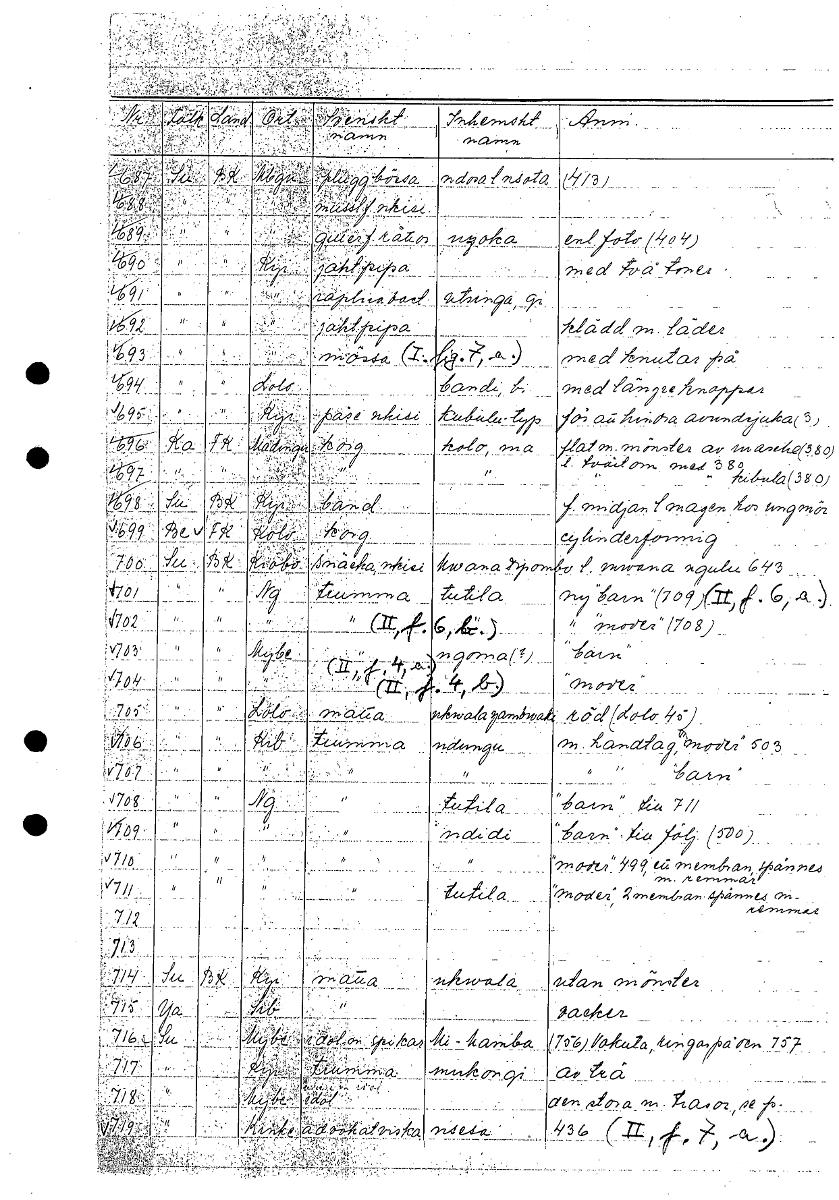 Nr Folk Land Ort Svenskt namn Inhemskt namn Anm.
687 Su BK pluggbössa ndosal nsota (413)
688 " " "
689 " " " nyoka enl foto (404)
690 " " Kyr jaktpipa med två toner
691 " " "
692 " " " jaktpipa klädd m. läder
693 " " " mössa (I. fig. 7, a.) med knutar på
694 " " Lolo bande, b. med längre knappar
695 " " Kyr påse nkisi kubulu-typ för att hindra avundsjuka (3)
696 Ka FK Madingu korg kolo, ma flat m. mönster av (380)
l. tvärt om med 380
697 " " " " " " " kibula (380)
698 Su BK Kyr band f. midjan l magen hos ungmör
699 Be FK Kolo korg cylinderformig
700 Su BK Kiobo snäcka, nkisi l. mwana ngulu 643
701 " " Ng trumma tutila ny "barn" (709) (II, f. 6, a.)
702 " " " " (II, f. 6, b.) " "moder" (708)
703 " " Mybe " (II, f. 4, a.) ngoma (?) "barn"
704 " " " " (II, f. 4, b.) "moder"
705 " " Lolo matta röd (Lolo 45)
706 " " Kib trumma ndungu m. handtag, "moder" 503
707 " " " " " " " "barn"
708 " " Ng " tutila "barn" till 711
709 " " " " ndidi "barn" till följ. (500)
710 " " " " " "moder" 499, ett membran, spännes
m. remmar
711 " " " " tutila "moder", 2 membran spännes m.
remmar
712
713
714 Su BK Kyr matta nkwala utan mönster
715 Ya Sib " vacker
716 Su Mybe idol m. spikar Mi-hamba (756) Vakuta, ringas på den 757
717 " Kyr trumma mukongi av trä
718 " Mybe idol den stora m. trasor, se p.
719 " Kinke advokatviska nsesa 436 (II, f. 7, a.)